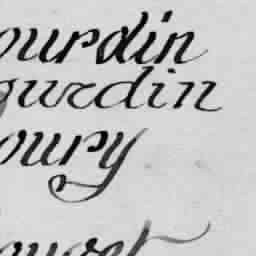 ourdin
gurdin
oury